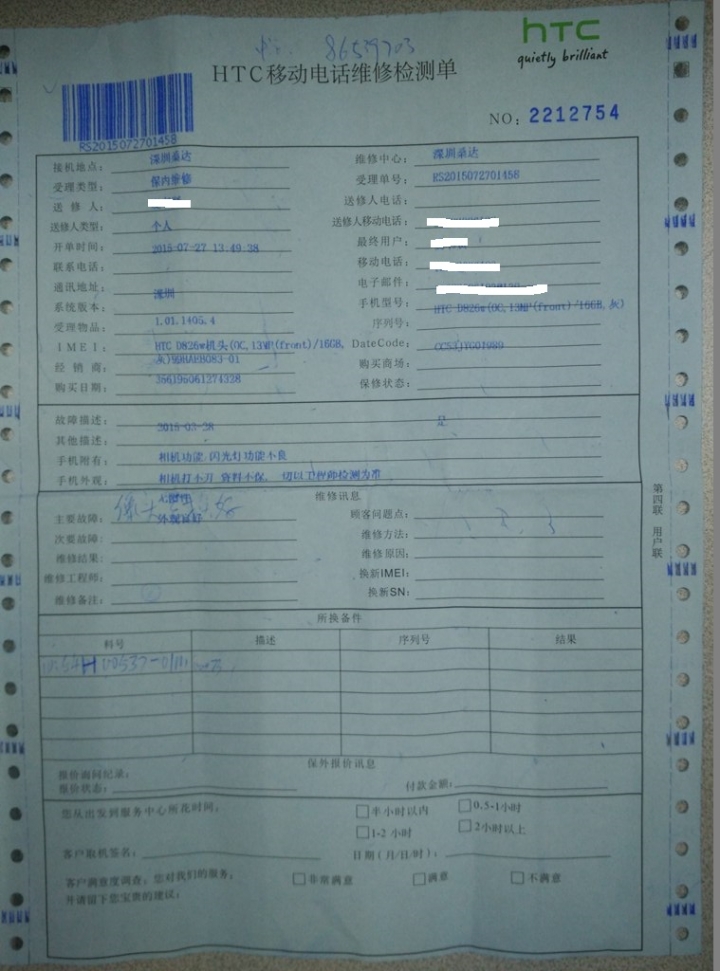 86539703
htc
quietly brilliant
HTC移动电话维修检测单
RS2015072701458
NO: 2212754
接机地点： 深圳桑达 维修中心： 深圳桑达
受理类型： 保内维修 受理单号： RS2015072701458
送修人： 送修人电话：
送修人类型： 个人 送修人移动电话：
开单时间： 2015-07-27 13:49:38 最终用户：
联系电话： 移动电话：
通讯地址： 深圳 电子邮件：
系统版本： 手机型号： HTC D826w(OC,13MP(front)/16GB,灰)
受理物品： 1.01.1405.4 序列号：
IMEI： HTC D826w机头(OC,13MP(front)/16GB, DateCode： CC53JYG01989
经销商： 灰)99HAFB083-01 购买商场：
购买日期： 356195061274328 保修状态：
故障描述： 2015-03-28 是
其他描述：
手机附有： 相机功能 闪光灯功能不良
手机外观： 相机打不开 资料不保，一切以工程师检测为准
无附件
维修讯息
外观良好
主要故障： 顾客问题点：
次要故障： 维修方法：
维修结果： 维修原因：
维修工程师： 换新IMEI：
维修备注： 换新SN：
第四联 用户联
所换备件
料号 描述 序列号 结果
保外报价讯息
报价询问纪录：
报价状态： 付款金额：
您从出发到服务中心所花时间： 半小时以内 0.5-1小时
1-2小时 2小时以上
客户取机签名： 日期(月/日/时)：
客户满意度调查，您对我们的服务， 非常满意 满意 不满意
并请留下您宝贵的建议：